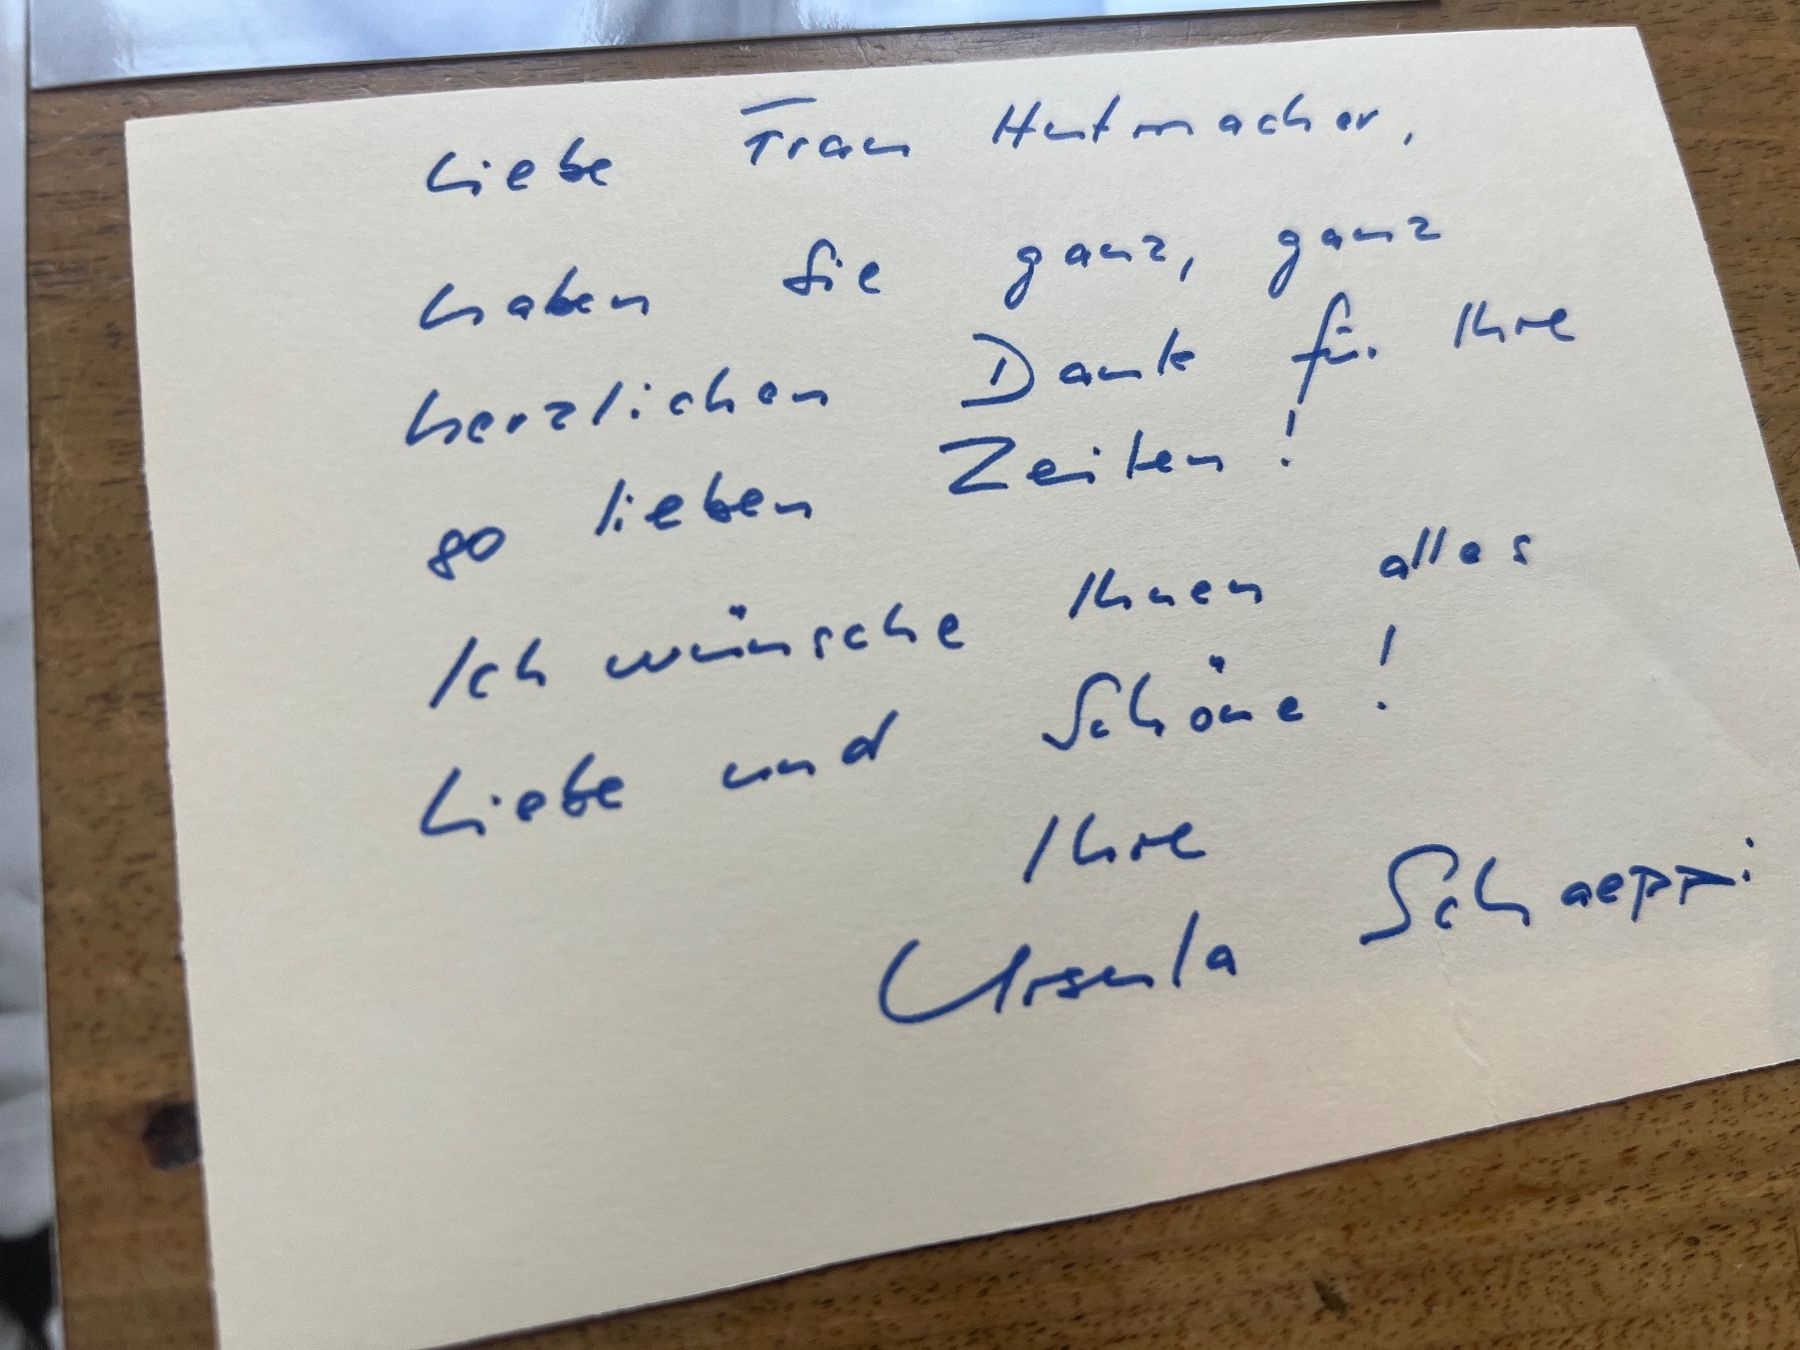 Liebe Frau Hutmacher,
haben Sie ganz, ganz
herzlichen Dank für Ihre
so lieben Zeilen!
Ich wünsche Ihnen alles
Liebe und Schöne!
Ihre
Ursula Schaeppi